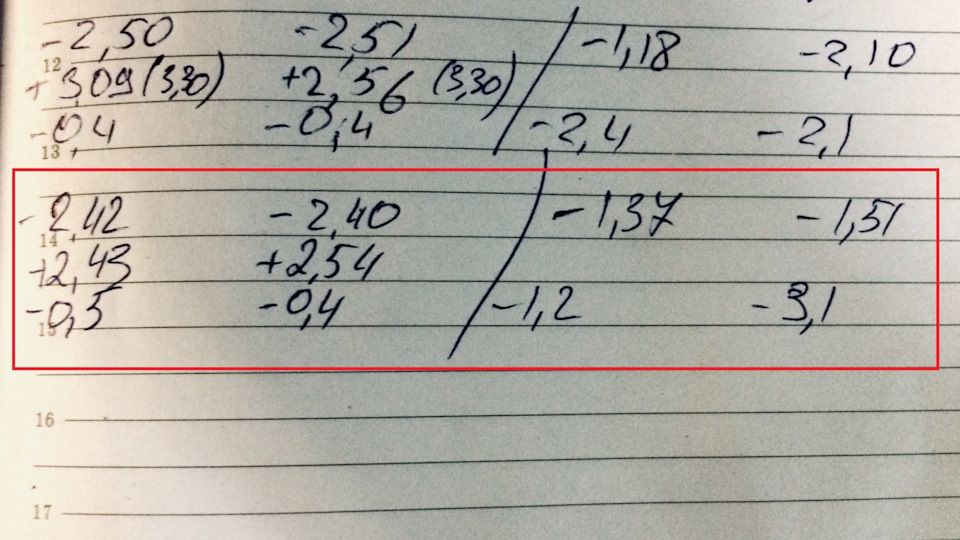 -2,50 -2,51 / -1,18 -2,10
12
+3,09 (3,30) +2,56 (3,30)
-0,4 -0,4 -2,4 -2,1
13
-2,42 -2,40 / -1,37 -1,51
14
+2,43 +2,54
-0,5 -0,4 -1,2 -3,1
15
16
17